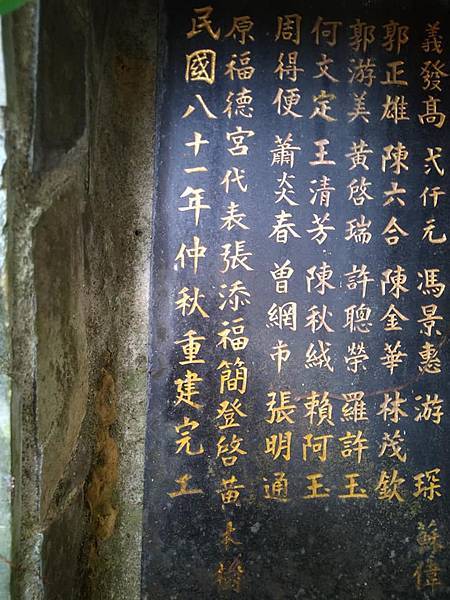 義發高 弍仟元 馮景惠 游琛 蘇偉
郭正雄 陳六合 陳金華 林茂欽
郭游美 黃啓瑞 許聰榮 羅許玉
何文定 王清芳 陳秋絨 賴阿玉
周得便 蕭炎春 曾網市 張明通
原福德宮代表張添福簡登啓黃木
民國八十一年仲秋重建完工